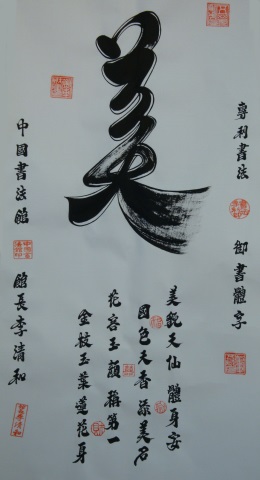 美
專利書法 御書體字
美貌天仙體身安
國色天香添美名
花容玉顏稱第一
金枝玉葉蓮花身
中國書法館 館長李清和